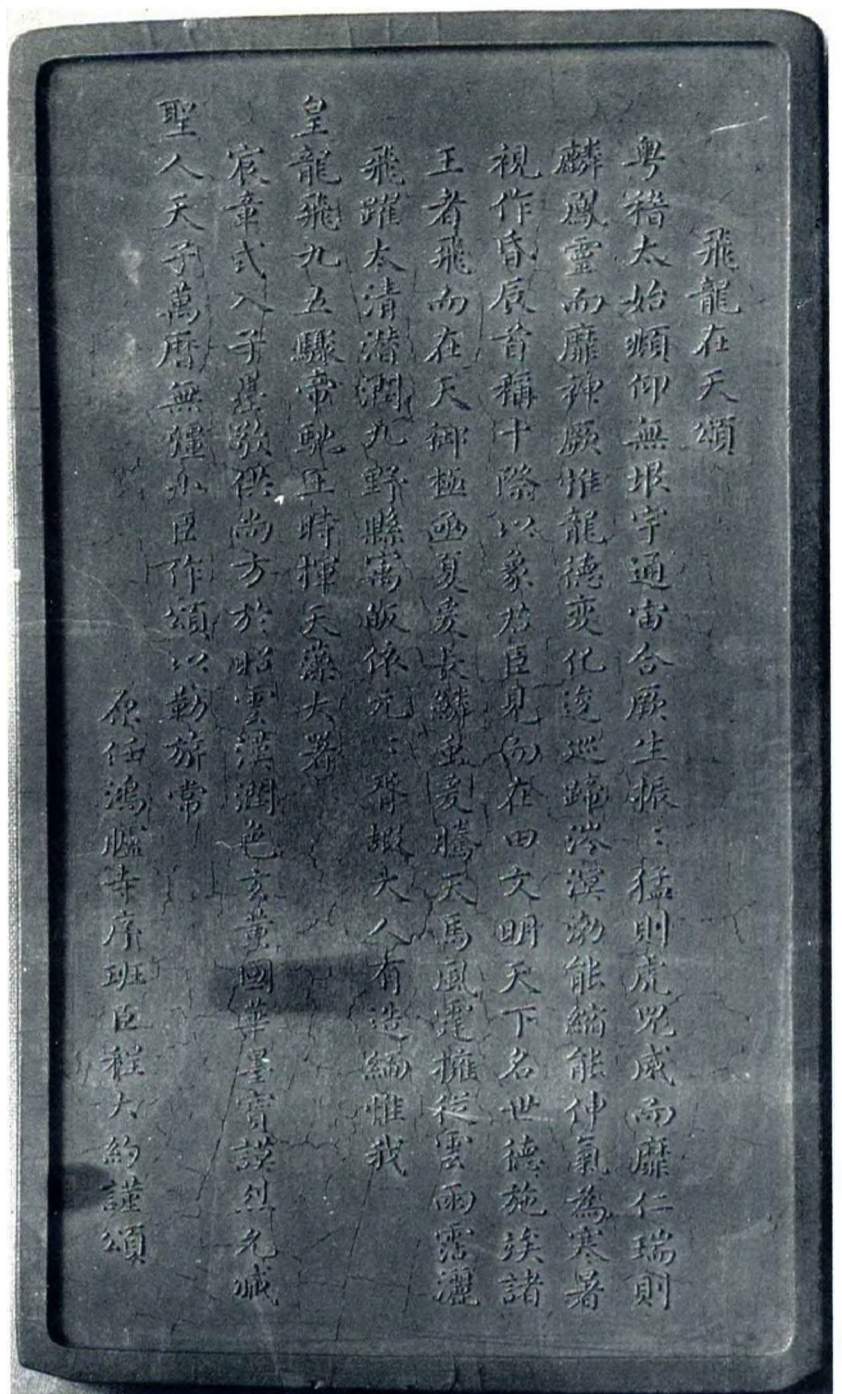 飛龍在天頌
粤稽太始頫仰無垠宇通宙合厥生振〻猛則虎兕威而靡仁瑞則
麟鳳靈而靡神厥惟龍德变化逡巡蹄涔溟渤能縮能伸氣為寒暑
視作昏辰首稱十際以象君臣見而在田文明天下名世德施俟諸
王者飛而在天御極函夏爰長鱗虫爰騰天馬風霆擁從雲雨霑灑
飛躍太清潜潤九野縣寓皈依元〻胥掇大人有造緬惟我
皇龍飛九五驟帝馳王時揮天藻大著
宸章式入子墨敬供尚方於昭雲漢潤色玄黄國華墨寶謨烈允臧
聖人天子萬曆無疆小臣作頌以勒旂常
原任鴻臚寺序班臣程大約謹頌